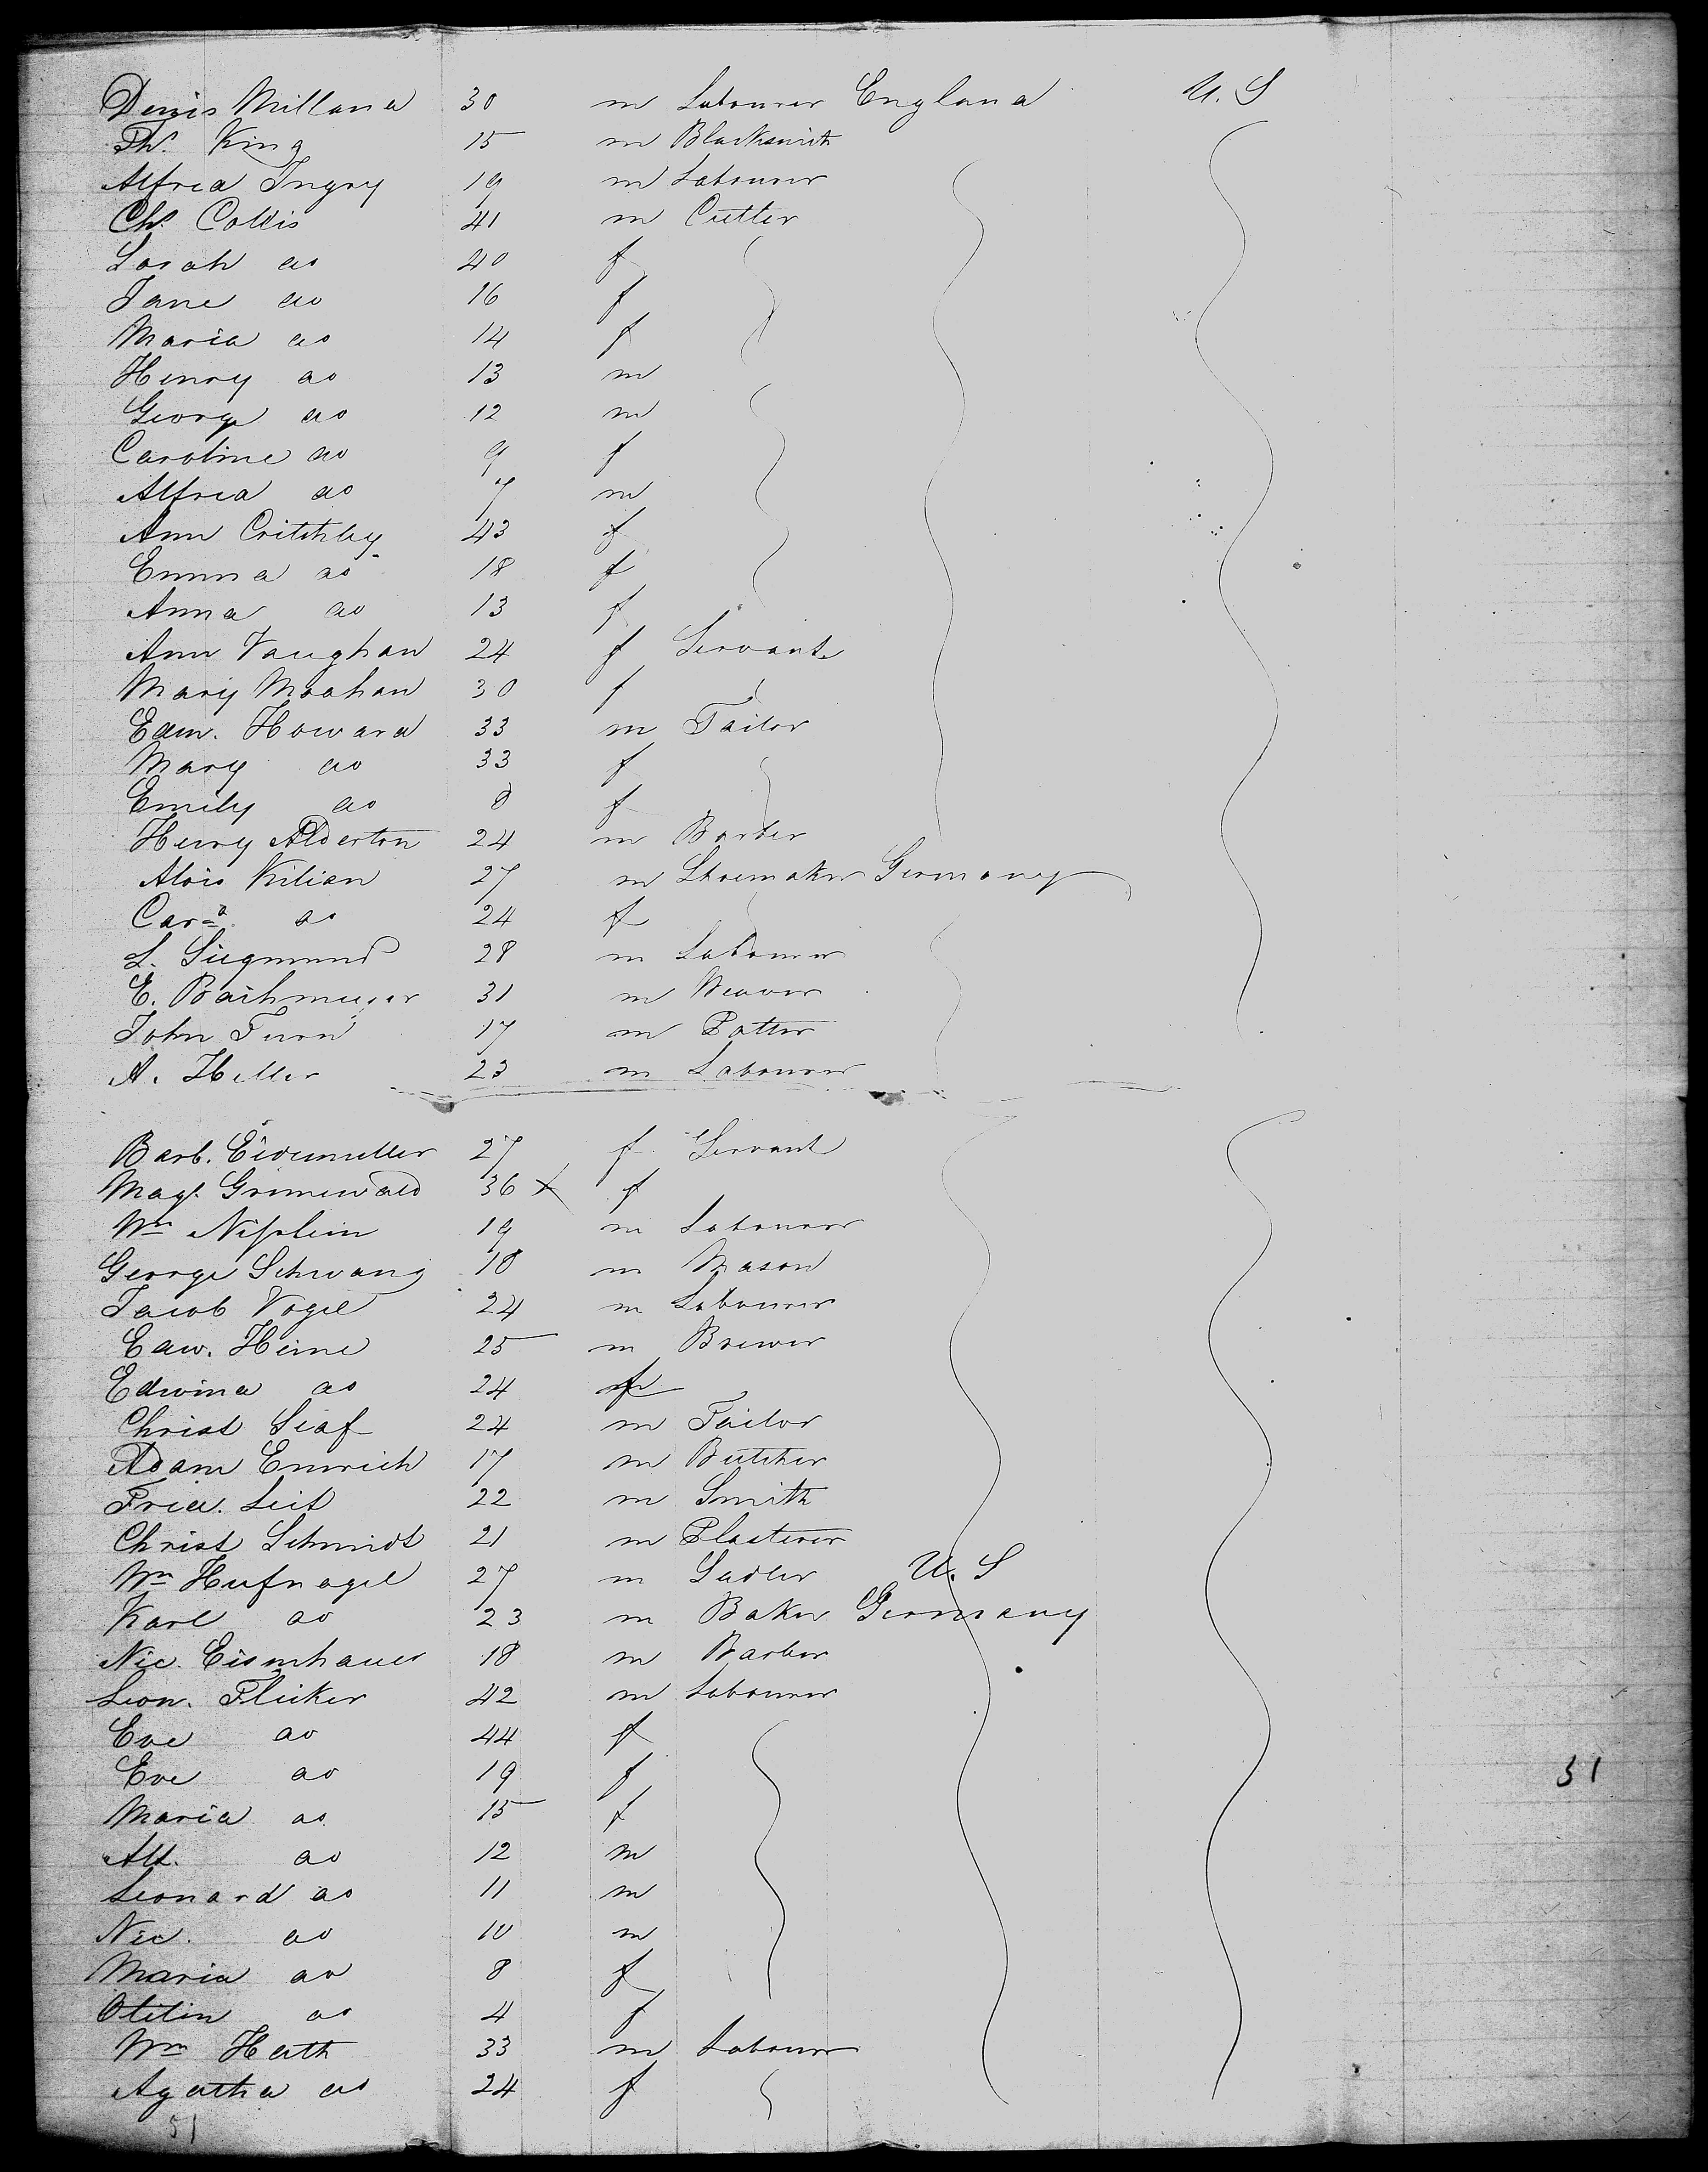 Denis Millana 30 m Labourer England U. S
Th. King 15 m Blacksmith
Alfred Ingry 19 m Labourer
Ch. Collis 41 m Cutter
Sarah do 40 f
Jane do 16 f
Maria do 14 f
Henry do 13 m
George do 12 m
Caroline do 9 f
Alfred do 7 m
Ann Critchley 43 f
Emma do 18 f
Anna do 13 f
Ann Vaughan 24 f Servant
Mary Moahan 30 f
Edw. Howard 33 m Tailor
Mary do 33 f
Emily do 8 f
Henry Alderton 24 m Barber
Alois Kilian 27 m Shoemaker Germany
Cara. do 24 f
L. Siegmund 28 m Labourer
E. 31 m Weaver
John Turn 17 m Potter
A. Heller 23 m Labourer
Barb. Eidemuller 27 f Servant
Mag. Grunewald 36 x f
Wm 19 m Labourer
George Schwang 18 m Mason
Jacob Vogel 24 m Labourer
Edw. Heine 25 m Brewer
Edwina do 24 f
Christ Seaf 24 m Tailor
Adam Emrich 17 m Butcher
Fried. Seit 22 m Smith
Christ Schmidt 21 m Plasterer
Wm Hufnagel 27 m Sadler U. S
Karl do 23 m Baker Germany
Nic. Eisenhauer 18 m Barber
Leon. Flicker 42 m Labourer
Eve do 44 f
Eve do 19 f
31
Maria do 15 f
Alf. do 12 m
Leonard do 11 m
Nic. do 10 m
Maria do 8 f
do 4 f
Wm Heath 33 m Labourer
Agatha do 24 f
51